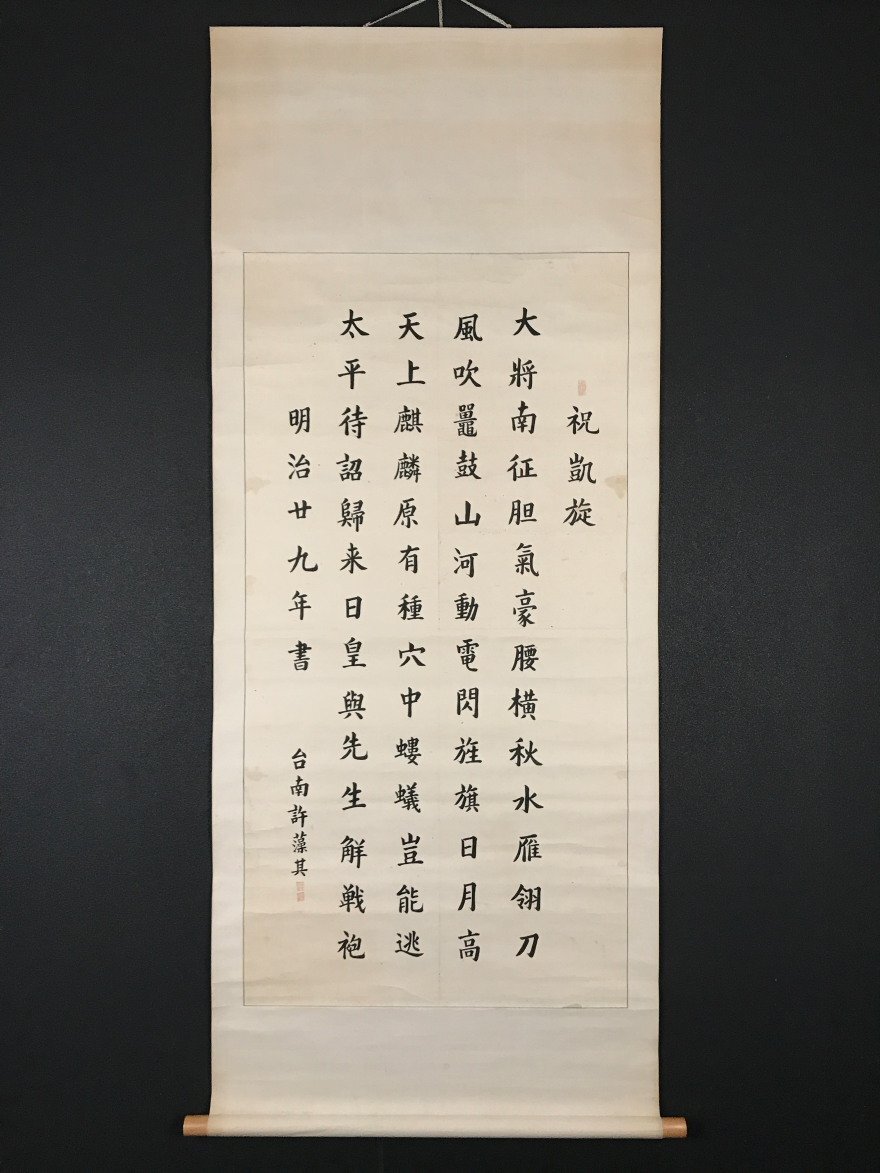 祝凱旋
大將南征胆氣豪腰橫秋水雁翎刀
風吹鼉鼓山河動電閃旌旗日月高
天上麒麟原有種穴中螻蟻豈能逃
太平待詔歸来日皇與先生解戦袍
明治廿九年書
台南許藻其